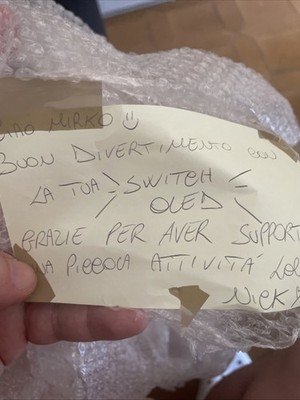 CIAO MIRKO
BUON DIVERTIMENTO CON
LA TUA SWITCH
OLED
GRAZIE PER AVER SUPPORT
PICCOLA ATTIVITÁ
NICK